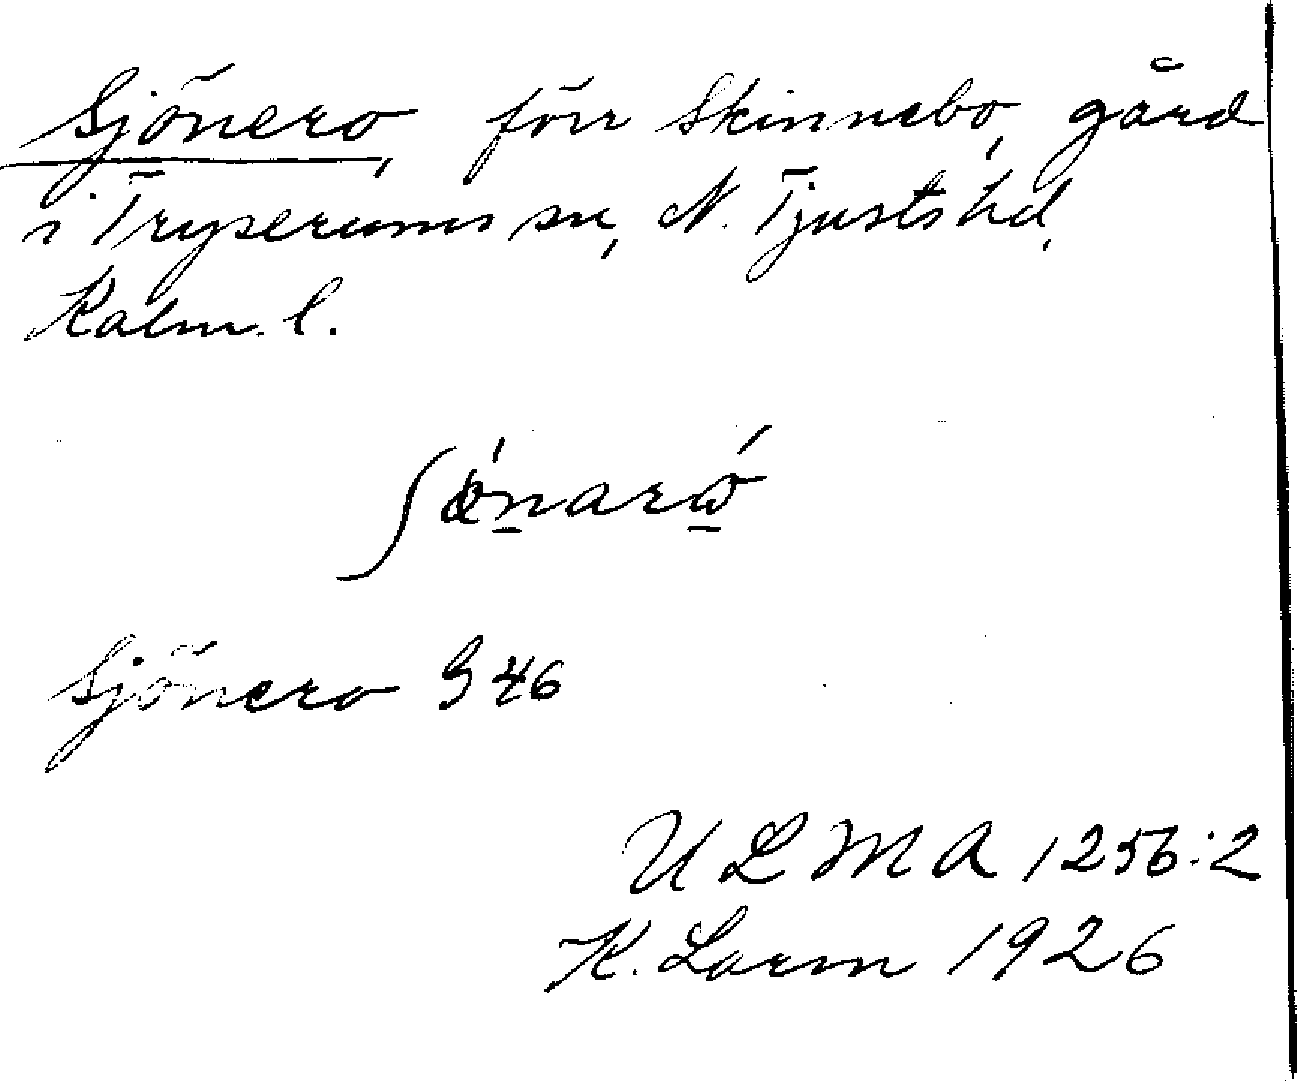 Sjönero, förr Skinnebo, gård
i Tryserums sn, N. Tjusts hd,
Kalm. l.
Sjönero G 46
U L M A 1256:2
K. Lorm 1926